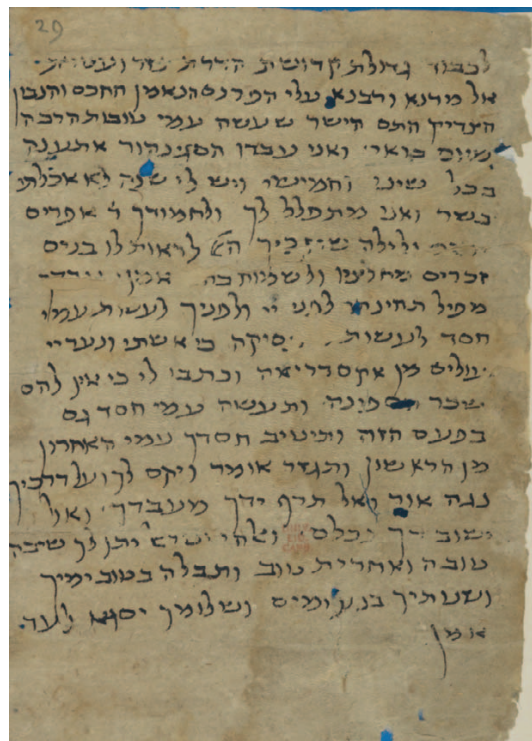 29
לכבוד גדולת קדושת הדרת
אל מרנא ורבנא עלי הפרנס הנאמן החכם והנבון
הצדיק התם הישר שעשה עמי טובות הרבה
מיום בואי ואני עבדו חסין נהור אתענה
בכל שיני וחמישי ויש לי שנה לא אכלתי
בשר ואני מתפלל לך ולחמודך ר אפרים
ולילה לראות לו בנים
זכרים מחלציו ולשמוח בה אמן
מפיל תחינתי לפני ייי ולפניך לעשות עמי
חסד לעשות פסיקה כי אשתי ונעריי
עולים מן אלכסנדריאה וכתבו לי כי אין להם
שכר הספינה ותעשה עמי חסד גם
בפעם הזה ותיטיב חסדך עמי האחרון
מן הראשון ותגזר אומר ויקם לך ועל דרכיך
נגה אור ואל תרף ידך מעבדך ואל
ישוב דך נכלם ואלהי ישראל יתן לך שיבה
טובה ואחרית טוב ותבלה בטוב ימיך
ושנותיך בנעימים ושלומך יסגא לעד
אמן